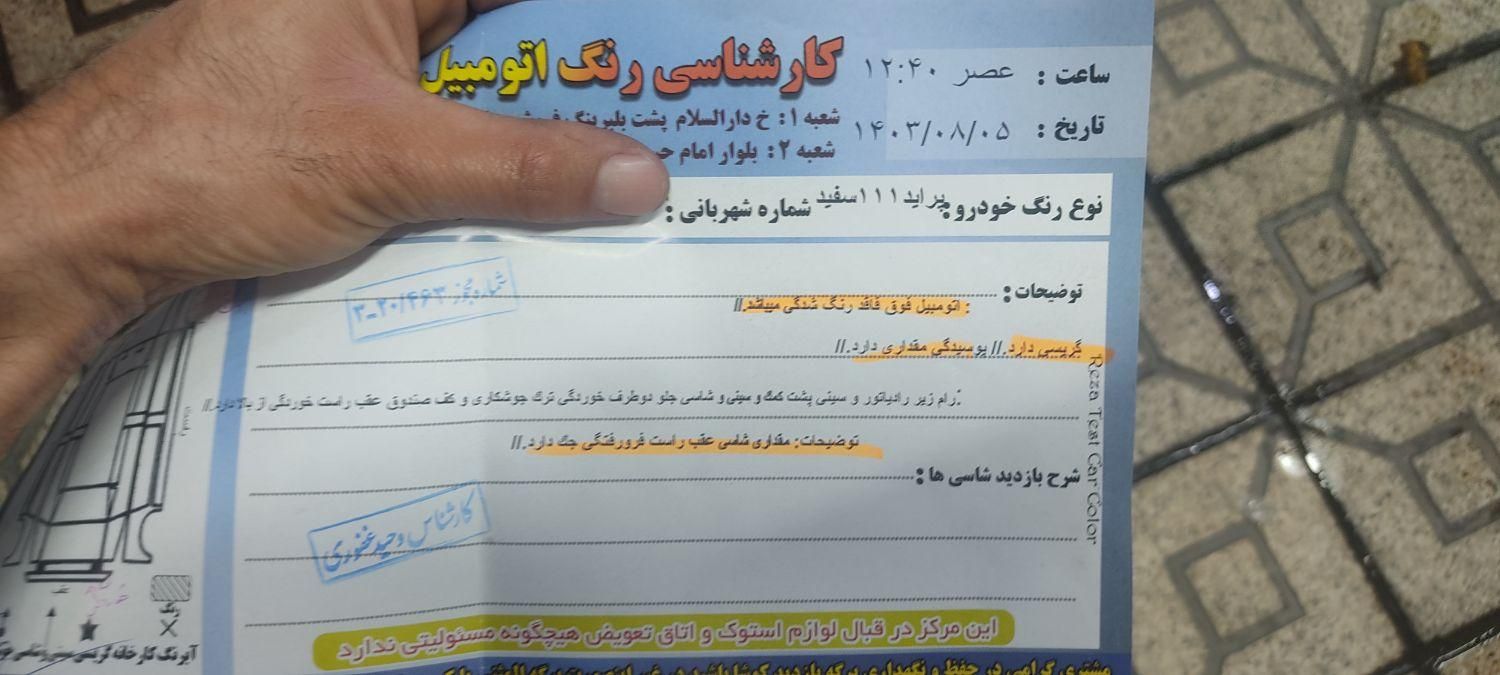 کارشناسی رنگ اتومبیل
ساعت : عصر ۱۲:۴۰
تاریخ : ۱۴۰۳/۰۸/۰۵
شعبه ۱ : خ دارالسلام پشت بلبرینگ
شعبه ۲ : بلوار امام
نوع رنگ خودرو : پراید ۱۱۱ سفید شماره شهربانی :
توضیحات :
شماره مجوز ۲۰/۴۶۳-۳
: اتومبیل فوق فاقد رنگ شدگی میباشد.//
گریسی دارد.// پوسیدگی مقداری دارد.//
:رام زیر رادیاتور و سینی پشت کمک و سینی و شاسی جلو دوطرف خوردگی ترک جوشکاری و کف صندوق عقب راست خوردگی از بالا دارد.//
توضیحات: مقداری شاسی عقب راست فرورفتگی جک دارد.//
شرح بازدید شاسی ها :
کارشناس وحید غفوری
Reza Test Car Color
عقب
رنگ
این مرکز در قبال لوازم استوک و اتاق تعویض هیچگونه مسئولیتی ندارد
مشتری گرامی در حفظ و نگهداری برگه بازدید کوشا باشید در غیر